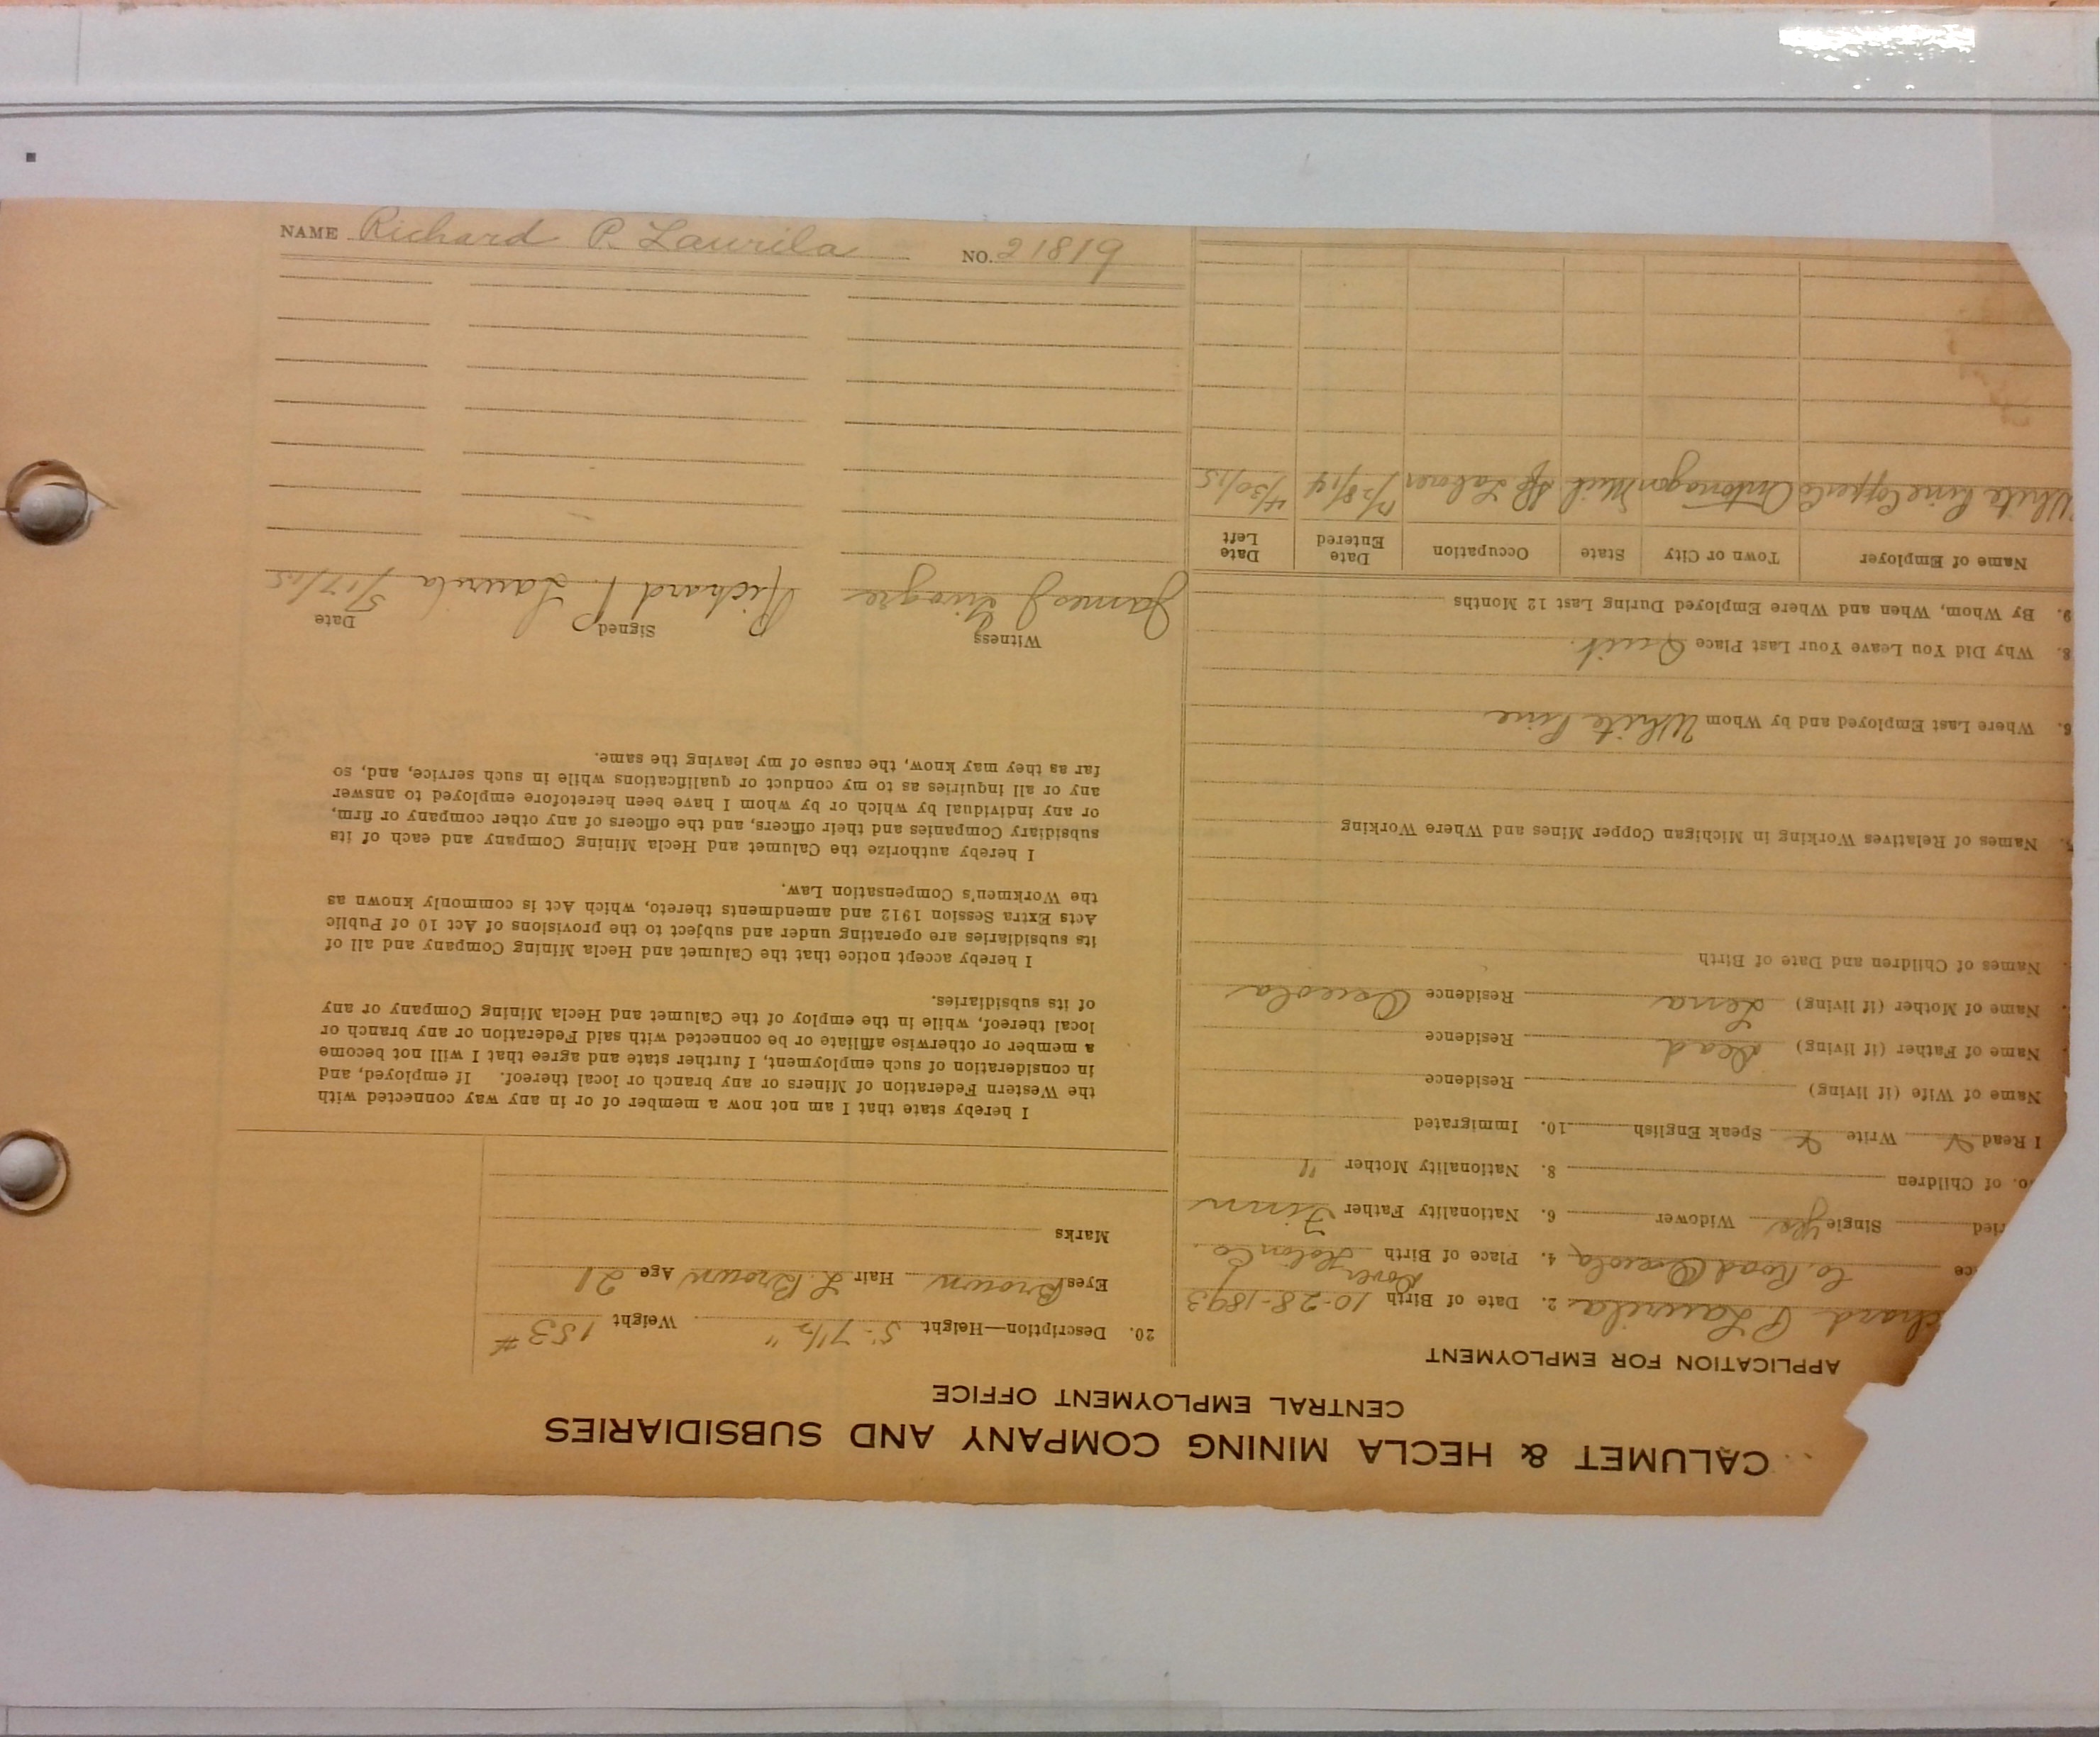 NAME Richard P. Laurila NO. 21819
CALUMET & HECLA MINING COMPANY AND SUBSIDIARIES
CENTRAL EMPLOYMENT OFFICE
APPLICATION FOR EMPLOYMENT
chard P. Laurila 2. Date of Birth 10-28-1893
ce Co. Road Osceola 4. Place of Birth
ried Single yes Widower 6. Nationality Father Finn
o. of Children 8. Nationality Mother "
I Read Write Speak English 10. Immigrated
Name of Wife (if living) Residence
Name of Father (if living) Dead Residence
Name of Mother (if living) Lena Residence Osceola
Names of Children and Date of Birth
Names of Relatives Working in Michigan Copper Mines and Where Working
Where Last Employed and by Whom White Pine
8. Why Did You Leave Your Last Place Quit.
9. By Whom, When and Where Employed During Last 12 Months
Name of Employer Town or City State Occupation Date Entered Date Left
White Pine Copper Co Ontonagon Mich Laborer 4/30/15
20. Description—Height 5'-7 1/2" Weight 153#
Eyes Brown Hair L. Brown Age 21
Marks
I hereby state that I am not now a member of or in any way connected with
the Western Federation of Miners or any branch or local thereof. If employed, and
in consideration of such employment, I further state and agree that I will not become
a member or otherwise affiliate or be connected with said Federation or any branch or
local thereof, while in the employ of the Calumet and Hecla Mining Company or any
of its subsidiaries.
I hereby accept notice that the Calumet and Hecla Mining Company and all of
its subsidiaries are operating under and subject to the provisions of Act 10 of Public
Acts Extra Session 1912 and amendments thereto, which Act is commonly known as
the Workmen's Compensation Law.
I hereby authorize the Calumet and Hecla Mining Company and each of its
subsidiary Companies and their officers, and the officers of any other company or firm,
or any individual by which or by whom I have been heretofore employed to answer
any or all inquiries as to my conduct or qualifications while in such service, and, so
far as they may know, the cause of my leaving the same.
Witness Signed Date
James J. Richard P. Laurila 5/17/15